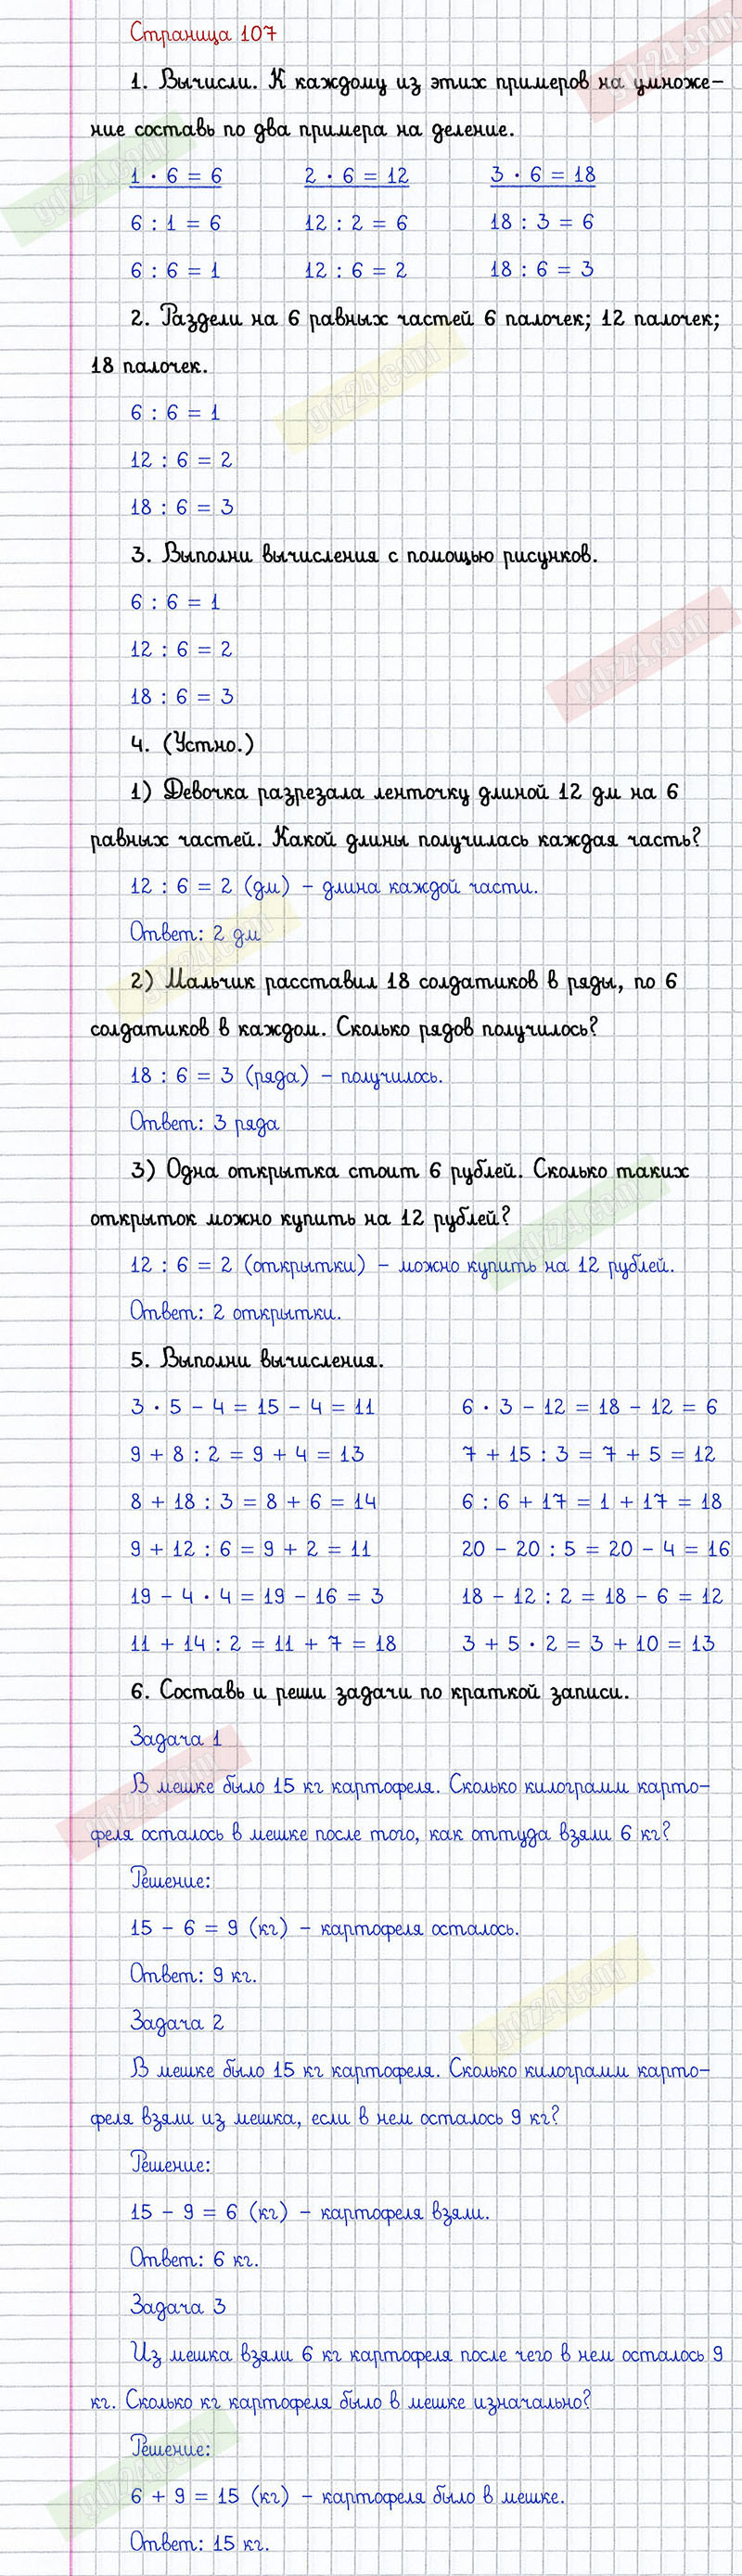 Страница 107
1. Вычисли. К каждому из этих примеров на умноже-
ние составь по два примера на деление.
1 · 6 = 6 2 · 6 = 12 3 · 6 = 18
6 : 1 = 6 12 : 2 = 6 18 : 3 = 6
6 : 6 = 1 12 : 6 = 2 18 : 6 = 3
2. Раздели на 6 равных частей 6 палочек; 12 палочек;
18 палочек.
6 : 6 = 1
12 : 6 = 2
18 : 6 = 3
3. Выполни вычисления с помощью рисунков.
6 : 6 = 1
12 : 6 = 2
18 : 6 = 3
4. (Устно.)
1) Девочка разрезала ленточку длиной 12 дм на 6
равных частей. Какой длины получилась каждая часть?
12 : 6 = 2 (дм) – длина каждой части.
Ответ: 2 дм
2) Мальчик расставил 18 солдатиков в ряды, по 6
солдатиков в каждом. Сколько рядов получилось?
18 : 6 = 3 (ряда) – получилось.
Ответ: 3 ряда
3) Одна открытка стоит 6 рублей. Сколько таких
открыток можно купить на 12 рублей?
12 : 6 = 2 (открытки) – можно купить на 12 рублей.
Ответ: 2 открытки.
5. Выполни вычисления.
3 · 5 – 4 = 15 – 4 = 11 6 · 3 – 12 = 18 – 12 = 6
9 + 8 : 2 = 9 + 4 = 13 7 + 15 : 3 = 7 + 5 = 12
8 + 18 : 3 = 8 + 6 = 14 6 : 6 + 17 = 1 + 17 = 18
9 + 12 : 6 = 9 + 2 = 11 20 – 20 : 5 = 20 – 4 = 16
19 – 4 · 4 = 19 – 16 = 3 18 – 12 : 2 = 18 – 6 = 12
11 + 14 : 2 = 11 + 7 = 18 3 + 5 · 2 = 3 + 10 = 13
6. Составь и реши задачи по краткой записи.
Задача 1
В мешке было 15 кг картофеля. Сколько килограмм карто-
феля осталось в мешке после того, как оттуда взяли 6 кг?
Решение:
15 – 6 = 9 (кг) – картофеля осталось.
Ответ: 9 кг.
Задача 2
В мешке было 15 кг картофеля. Сколько килограмм карто-
феля взяли из мешка, если в нем осталось 9 кг?
Решение:
15 – 9 = 6 (кг) – картофеля взяли.
Ответ: 6 кг.
Задача 3
Из мешка взяли 6 кг картофеля после чего в нем осталось 9
кг. Сколько кг картофеля было в мешке изначально?
Решение:
6 + 9 = 15 (кг) – картофеля было в мешке.
Ответ: 15 кг.
gdz24.com
gdz24.com
gdz24.com
gdz24.com
gdz24.com
gdz24.com
gdz24.com
gdz24.com
gdz24.com